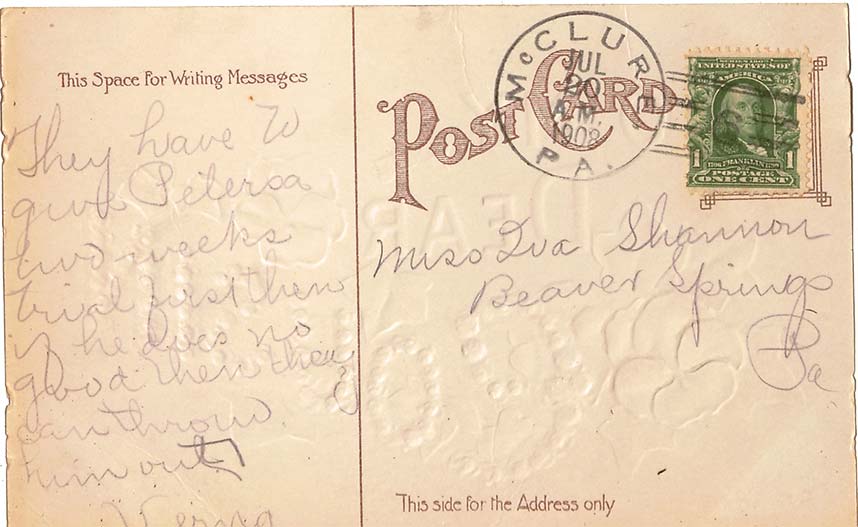 This Space For Writing Messages
They have to
give Peters a
two weeks
trial first then
if he does no
good then they
can throw
him out
Verna
POST CARD
McCLURE
JUL
20
A.M.
1908
PA.
SERIES 1902
UNITED STATES OF
AMERICA
1 FRANKLIN 1
POSTAGE
ONE CENT
Miss Iva Shannon
Beaver Springs
Pa
This side for the Address only